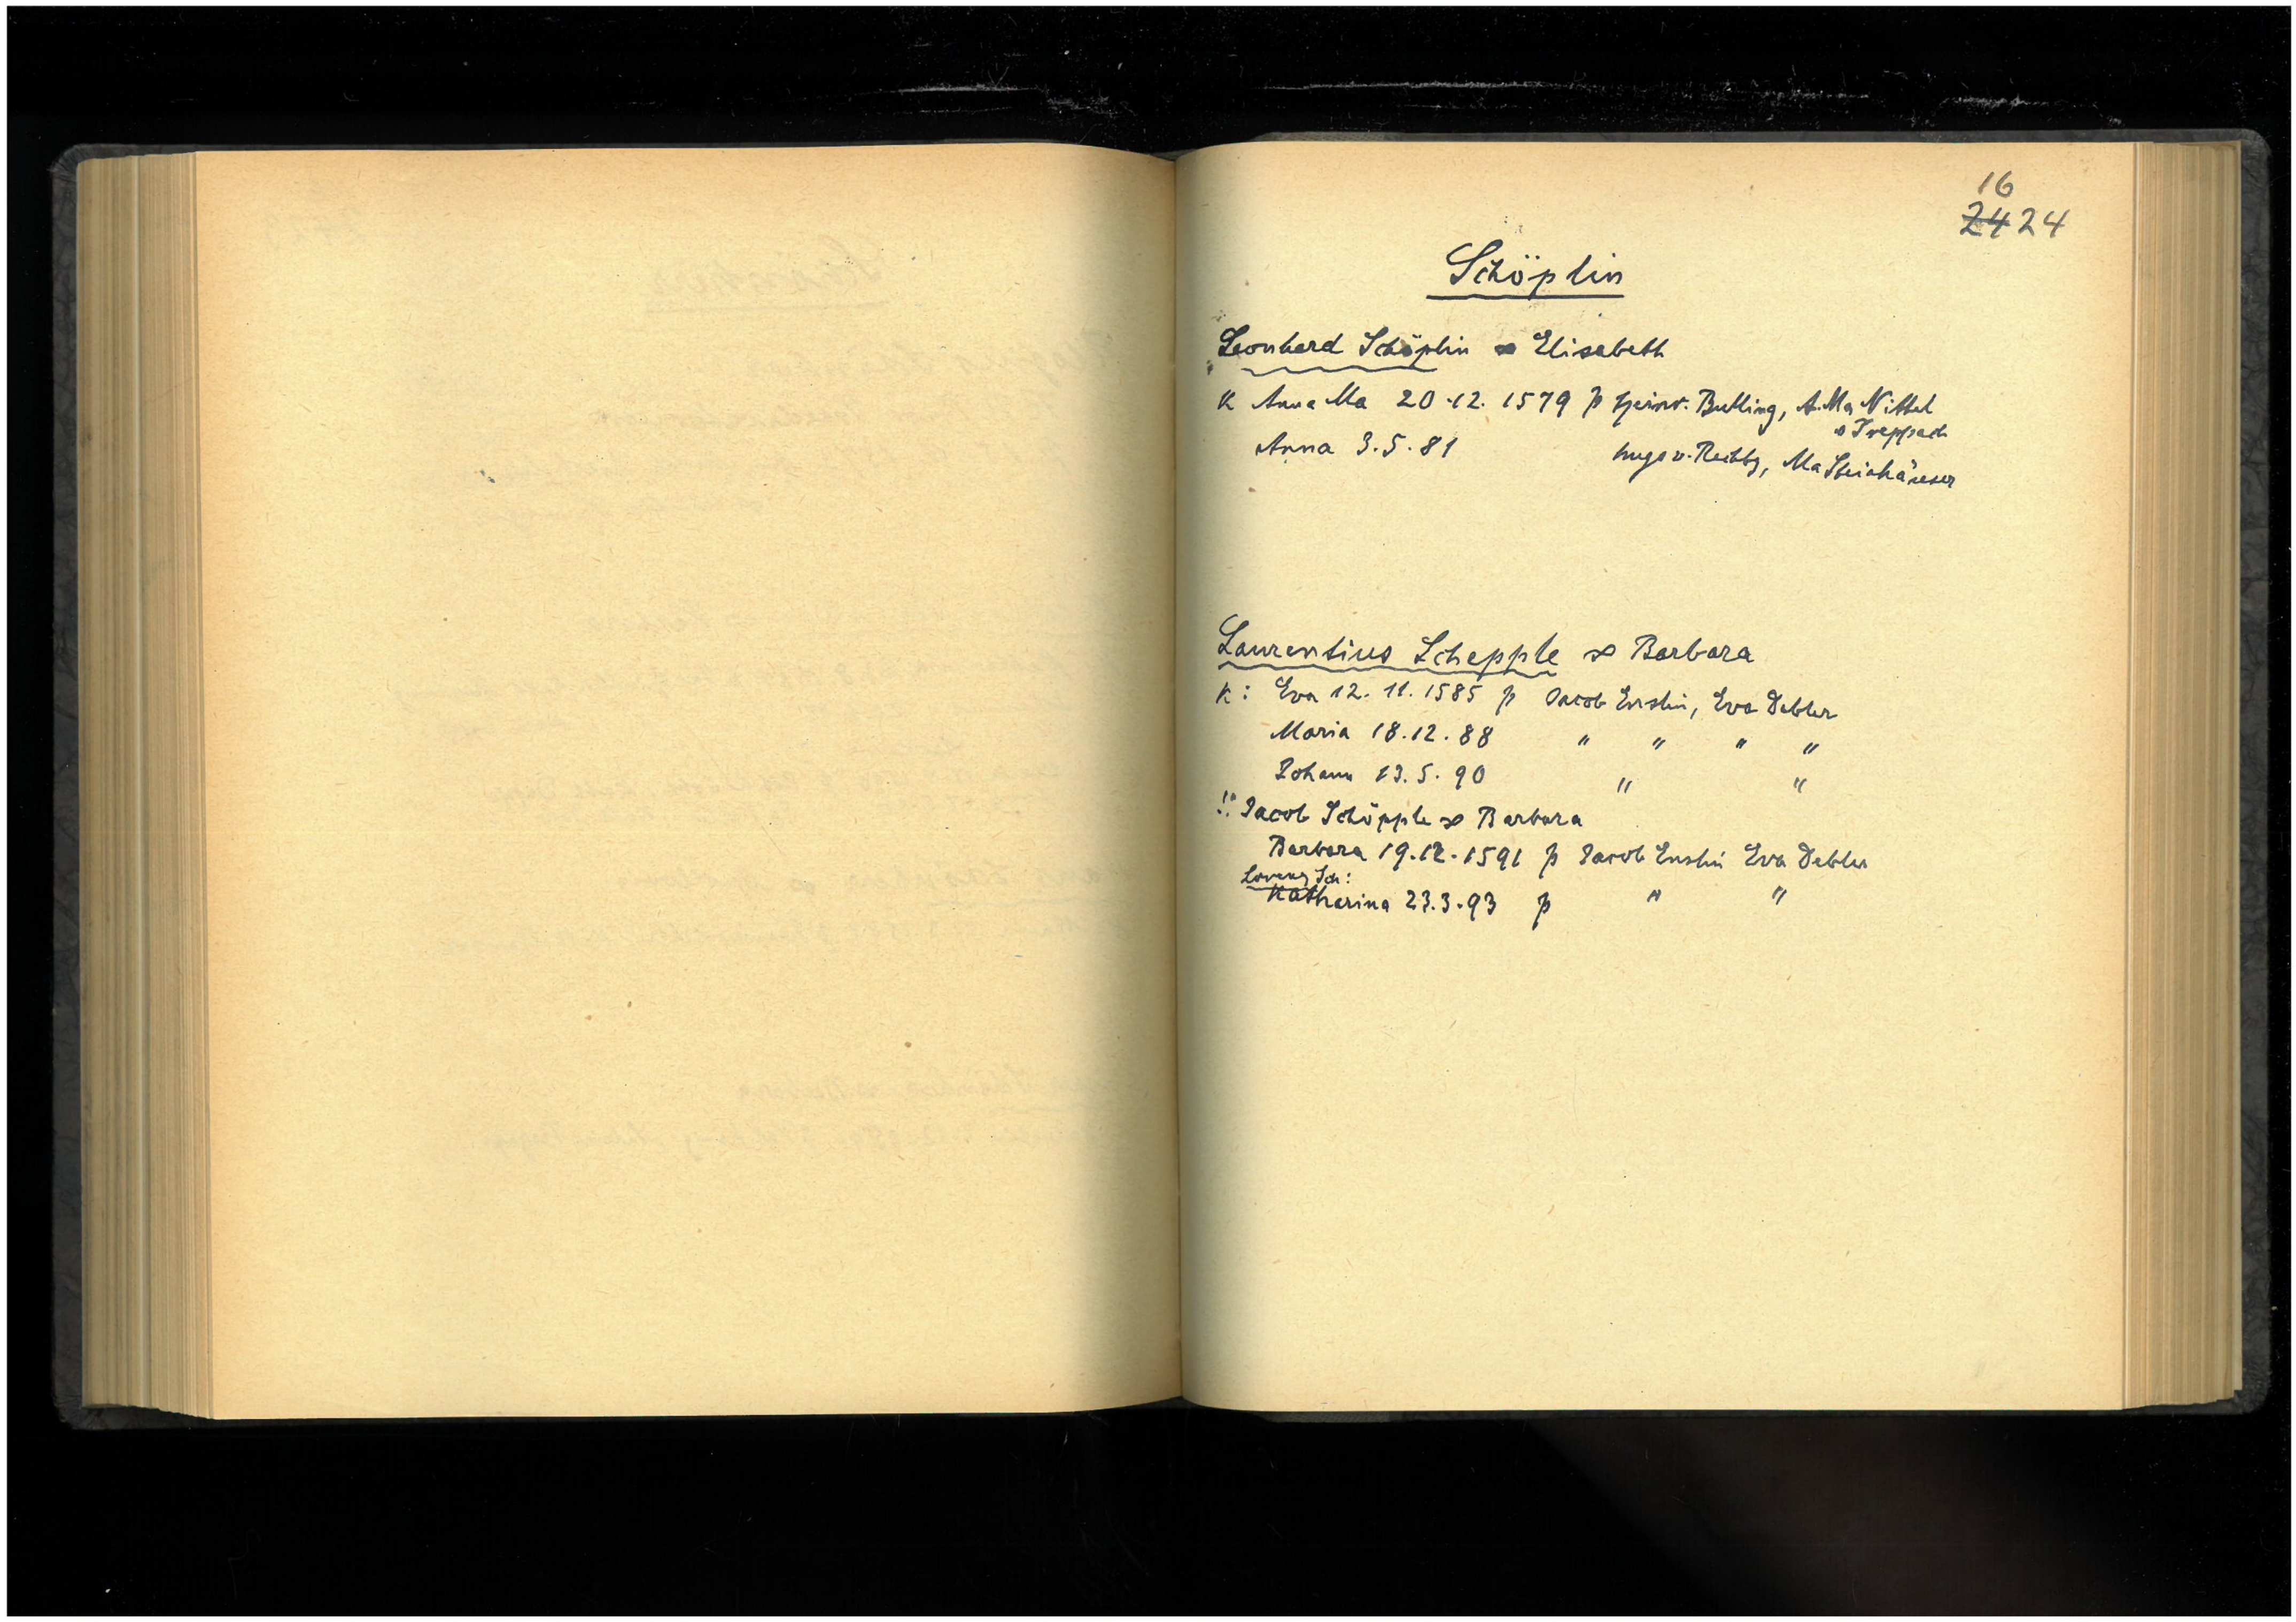 16
24 24
Schöplin
Leonhard Schöplin ∞ Elisabeth
K Anna Ma 20.12.1579 p Heinr. Butling, A. Ma Nittel
v Treppach
Anna 3.5.81 hugo v. Rechbg, Ma Steinhäuser
Laurentius Schepple ∞ Barbara
K: Eva 12.11.1585 p Jacob Enslin, Eva Debler
Maria 18.12.88 " " " "
Johann 13.5.90 " "
!! Jacob Schöpple ∞ Barbara
Barbara 19.12.1591 p Jacob Enslin Eva Debler
Lorenz Sch:
Katharina 23.3.93 p " "